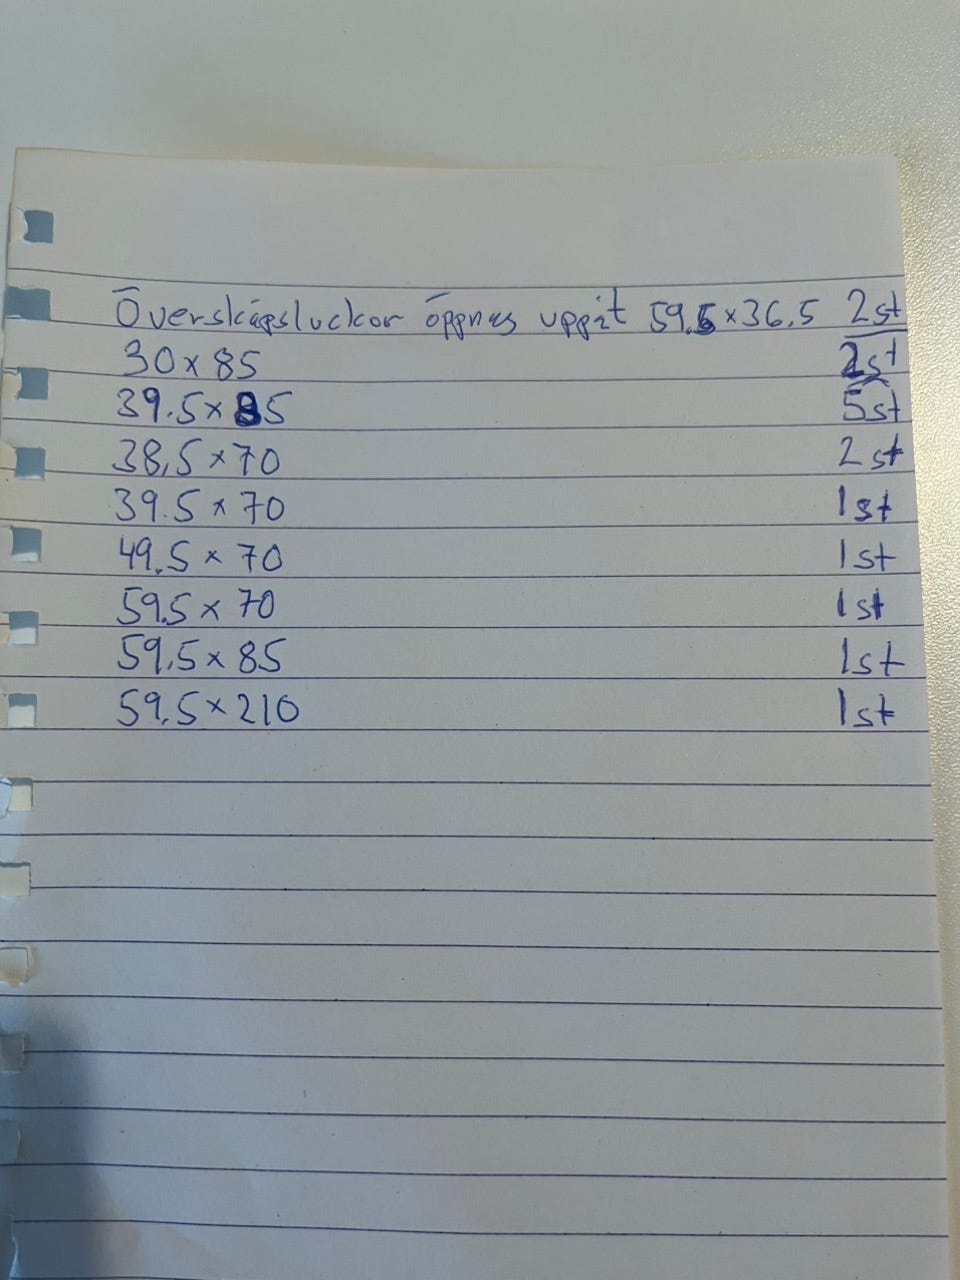 Överskåpsluckor öppnas uppåt 59,5 x 36,5 2st
30 x 85 2st
39.5 x 85 5st
38,5 x 70 2 st
39.5 x 70 1st
49,5 x 70 1st
59,5 x 70 1st
59,5 x 85 1st
59,5 x 210 1st